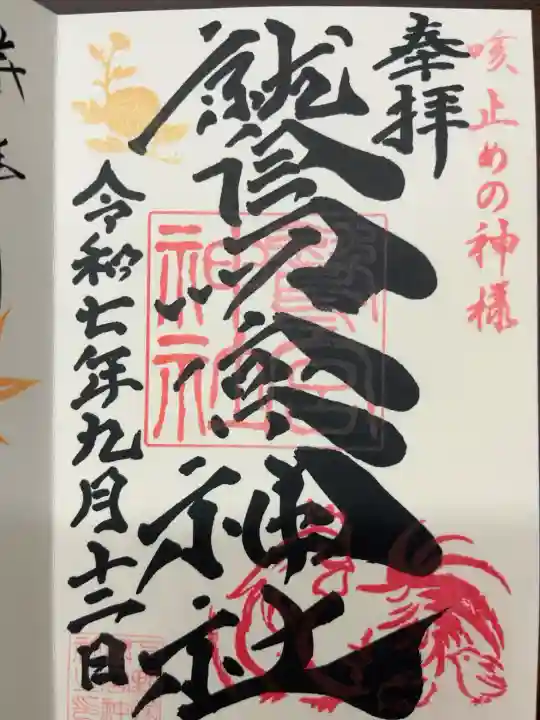 咳止めの神様
奉拝
鷲宮神社
鷲宮神社
令和七年九月十二日